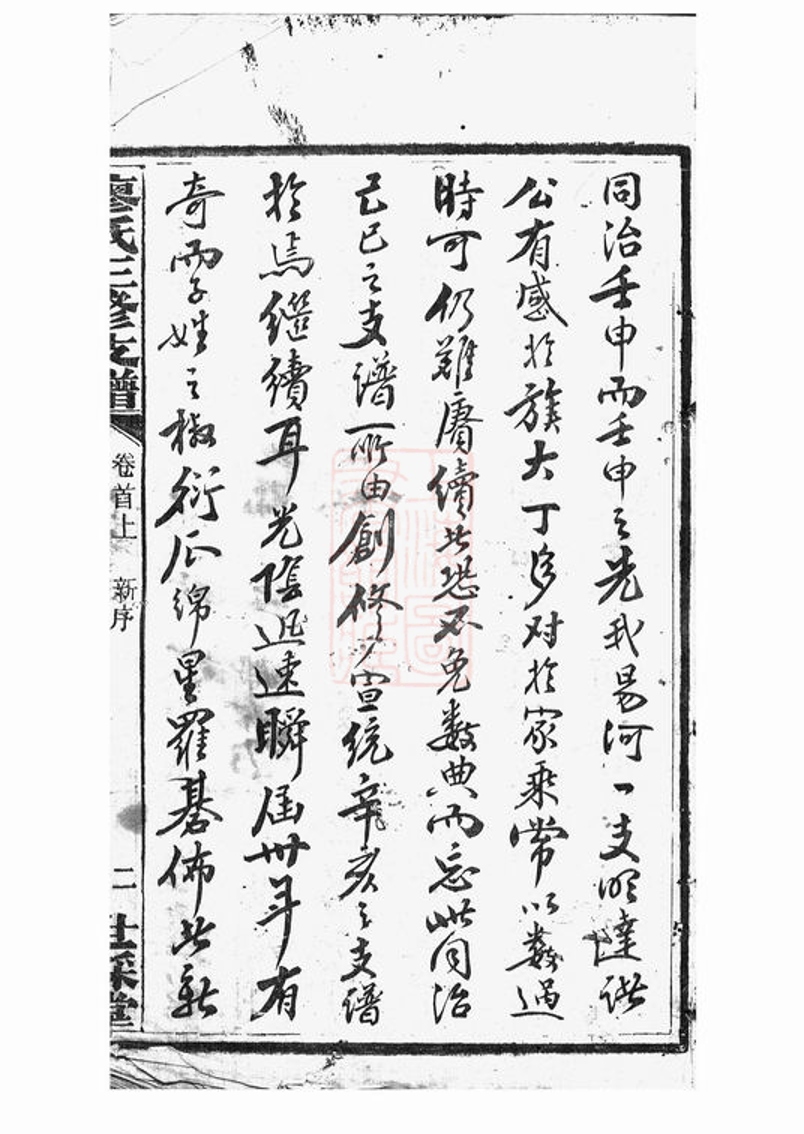 同治壬申而壬申之先我易河一支明達諸
公有感於族大丁多对於家乘常以数過
時可仍難賡續始恐不免数典而忘此同治
己巳之支譜所由創修宣統辛亥之支譜
於焉繼續耳光陰迅速瞬届卅年有
奇而子姓之椒衍瓜綿星羅碁佈者新
廖氏三修支譜 卷首上 新序 二 世綵堂